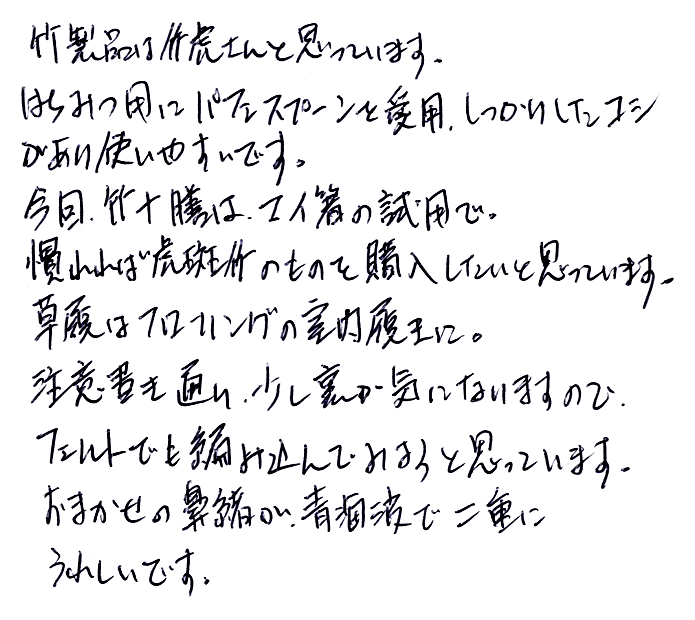 竹製品は竹虎さんと思っています。
はちみつ用にパフェスプーンを愛用、しっかりしたコシ
があり使いやすいです。
今回、竹十膳は、マイ箸の試用で。
慣れれば虎斑竹のものを購入したいと思っています。
草履はフローリングの室内履きに。
注意書き通り、少し裏が気になりますので、
フェルトでも編み込んでみようと思っています。
おまかせの鼻緒が、青海波で二重に
うれしいです。